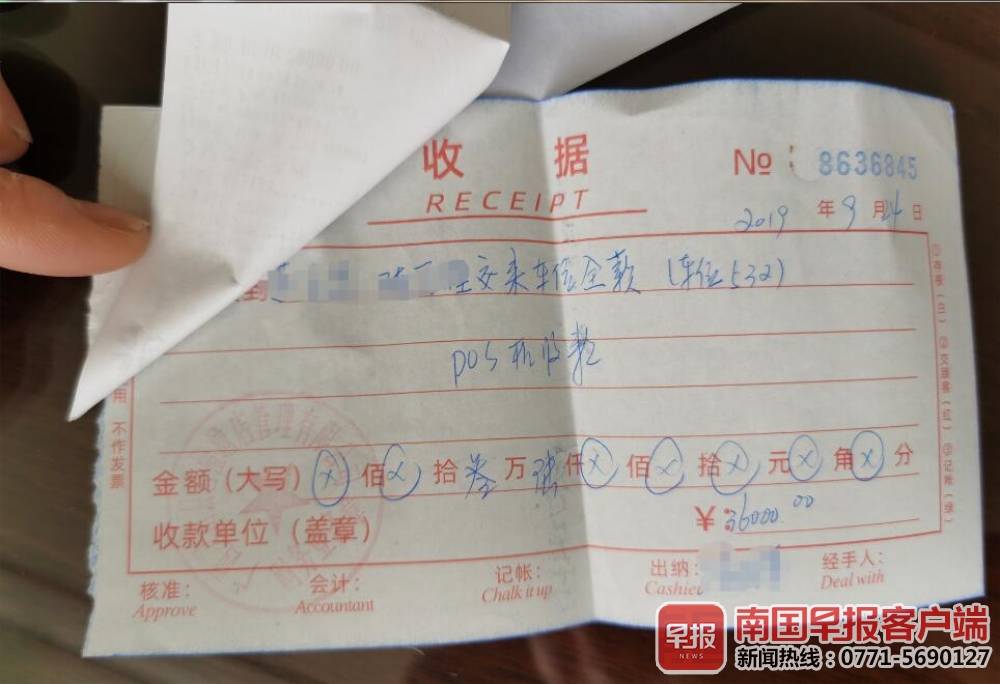 收 据
RECEIPT
№ 8636845
2019 年 9 月 24 日
到 交来车位全款 (车位532)
POS机收款
用 不作发票
金额 (大写) ⓧ 佰 ⓧ 拾 叁 万 陆 仟 ⓧ 佰 ⓧ 拾 ⓧ 元 ⓧ 角 ⓧ 分
¥: 36000.00
收款单位 (盖章)
核准: 会计: 记帐: 出纳: 经手人:
Approve Accountant Chalk it up Cashier Deal with
早报 南国早报客户端
NEWS 新闻热线: 0771-5690127